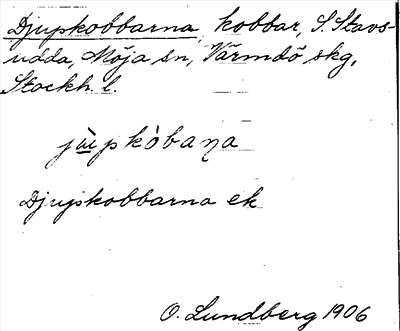 Djupkobbarna, kobbar, S. Stavs-
udda, Möja sn, Värmdö skg,
Stockh. l.
jùpkòbaɳa
Djupkobbarna ek
O. Lundberg 1906